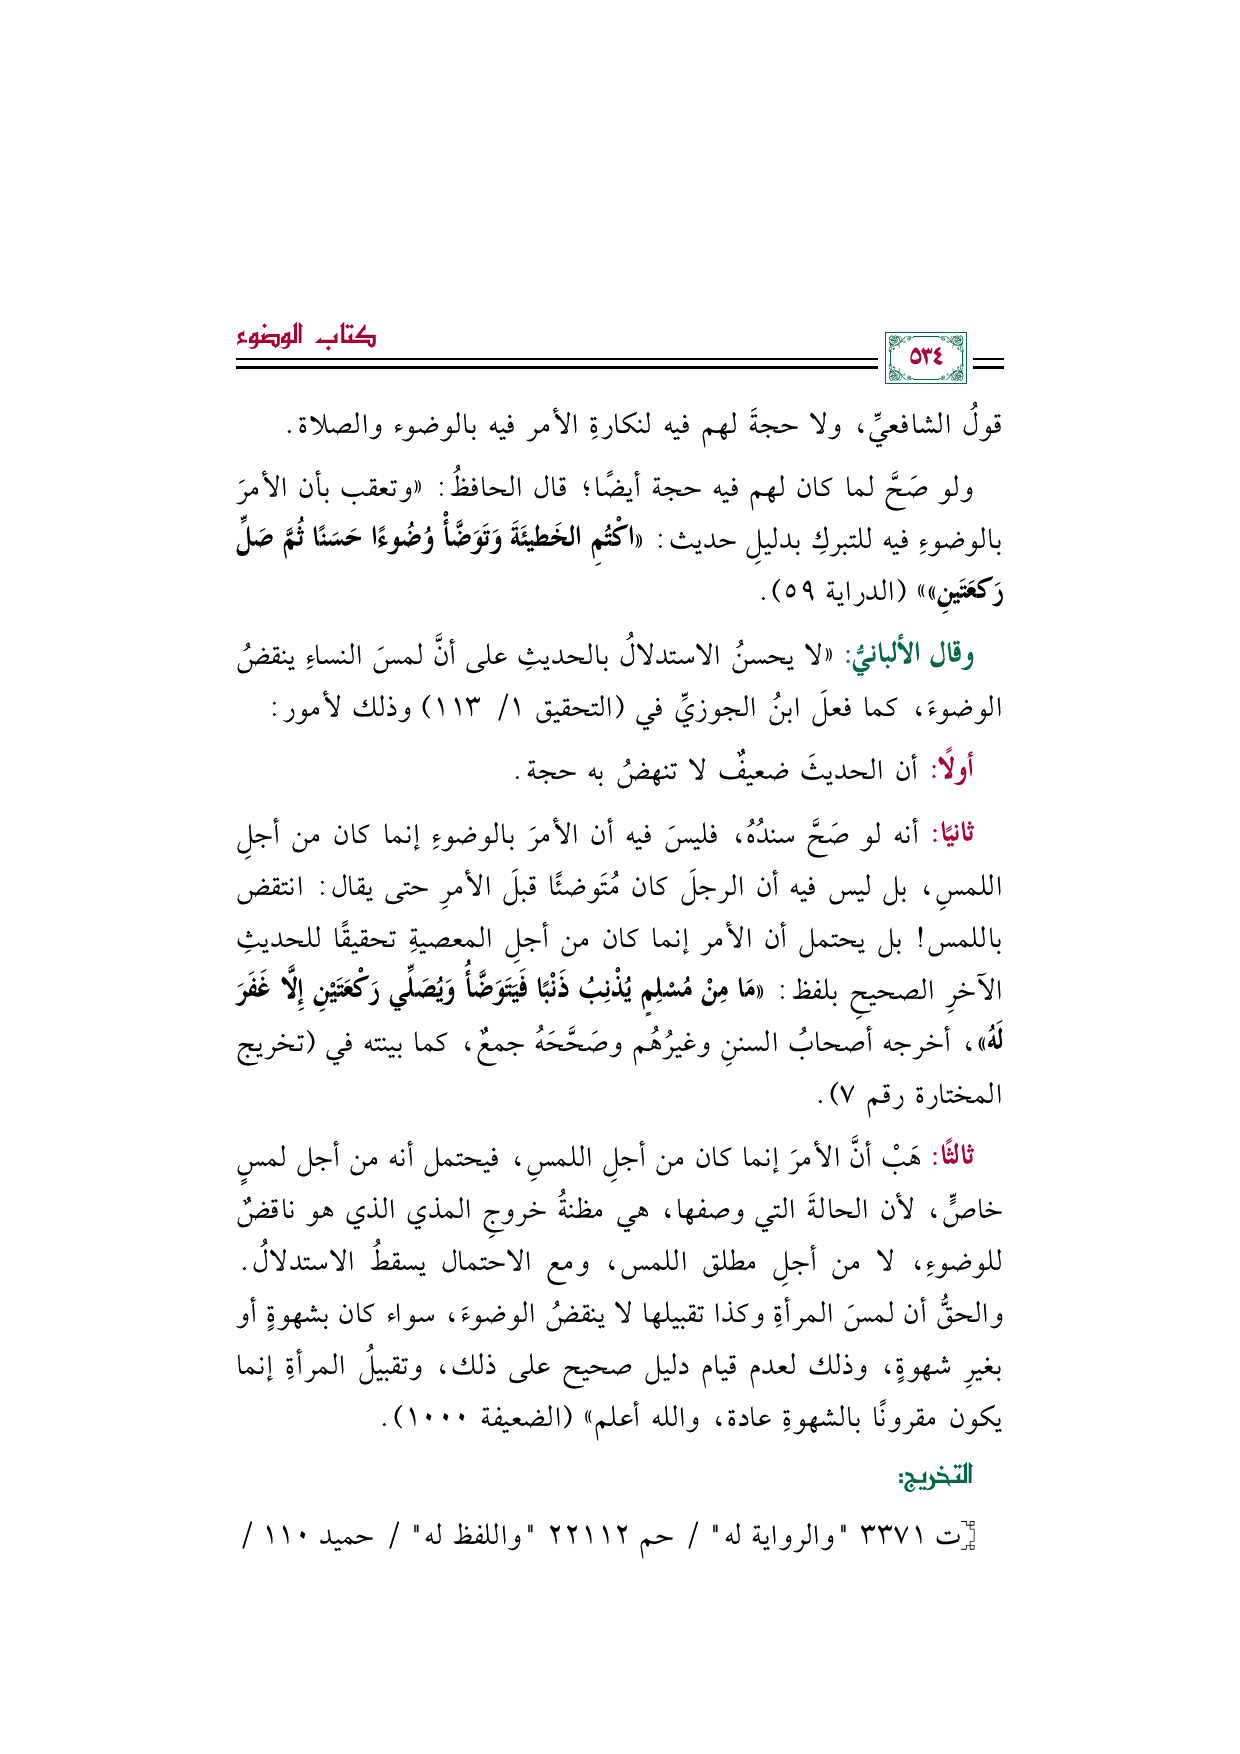 كتاب الوضوء
٥٣٤
قولُ الشافعيِّ، ولا حجةَ لهم فيه لنكارةِ الأمر فيه بالوضوء والصلاة.
ولو صَحَّ لما كان لهم فيه حجة أيضًا؛ قال الحافظُ: «وتعقب بأن الأمرَ
بالوضوءِ فيه للتبركِ بدليلِ حديث: «اكْتُمِ الخَطيئَةَ وَتَوَضَّأْ وُضُوءًا حَسَنًا ثُمَّ صَلِّ
رَكعَتَينِ»» (الدراية ٥٩).
وقال الألبانيُّ: «لا يحسنُ الاستدلالُ بالحديثِ على أنَّ لمسَ النساءِ ينقضُ
الوضوءَ، كما فعلَ ابنُ الجوزيِّ في (التحقيق ١/ ١١٣) وذلك لأمور:
أولًا: أن الحديثَ ضعيفٌ لا تنهضُ به حجة.
ثانيًا: أنه لو صَحَّ سندُهُ، فليسَ فيه أن الأمرَ بالوضوءِ إنما كان من أجلِ
اللمسِ، بل ليس فيه أن الرجلَ كان مُتَوضئًا قبلَ الأمرِ حتى يقال: انتقض
باللمس! بل يحتمل أن الأمر إنما كان من أجلِ المعصيةِ تحقيقًا للحديثِ
الآخرِ الصحيحِ بلفظ: «مَا مِنْ مُسْلِمٍ يُذْنِبُ ذَنْبًا فَيَتَوَضَّأُ وَيُصَلِّي رَكْعَتَيْنِ إِلَّا غَفَرَ
لَهُ»، أخرجه أصحابُ السننِ وغيرُهُم وصَحَّحَهُ جمعٌ، كما بينته في (تخريج
المختارة رقم ٧).
ثالثًا: هَبْ أنَّ الأمرَ إنما كان من أجلِ اللمسِ، فيحتمل أنه من أجل لمسٍ
خاصٍّ، لأن الحالةَ التي وصفها، هي مظنةُ خروجِ المذي الذي هو ناقضٌ
للوضوءِ، لا من أجلِ مطلق اللمس، ومع الاحتمال يسقطُ الاستدلالُ.
والحقُّ أن لمسَ المرأةِ وكذا تقبيلها لا ينقضُ الوضوءَ، سواء كان بشهوةٍ أو
بغيرِ شهوةٍ، وذلك لعدم قيام دليل صحيح على ذلك، وتقبيلُ المرأةِ إنما
يكون مقرونًا بالشهوةِ عادة، والله أعلم» (الضعيفة ١٠٠٠).
التخريج:
[ت ٣٣٧١ "والرواية له" / حم ٢٢١١٢ "واللفظ له" / حميد ١١٠ /